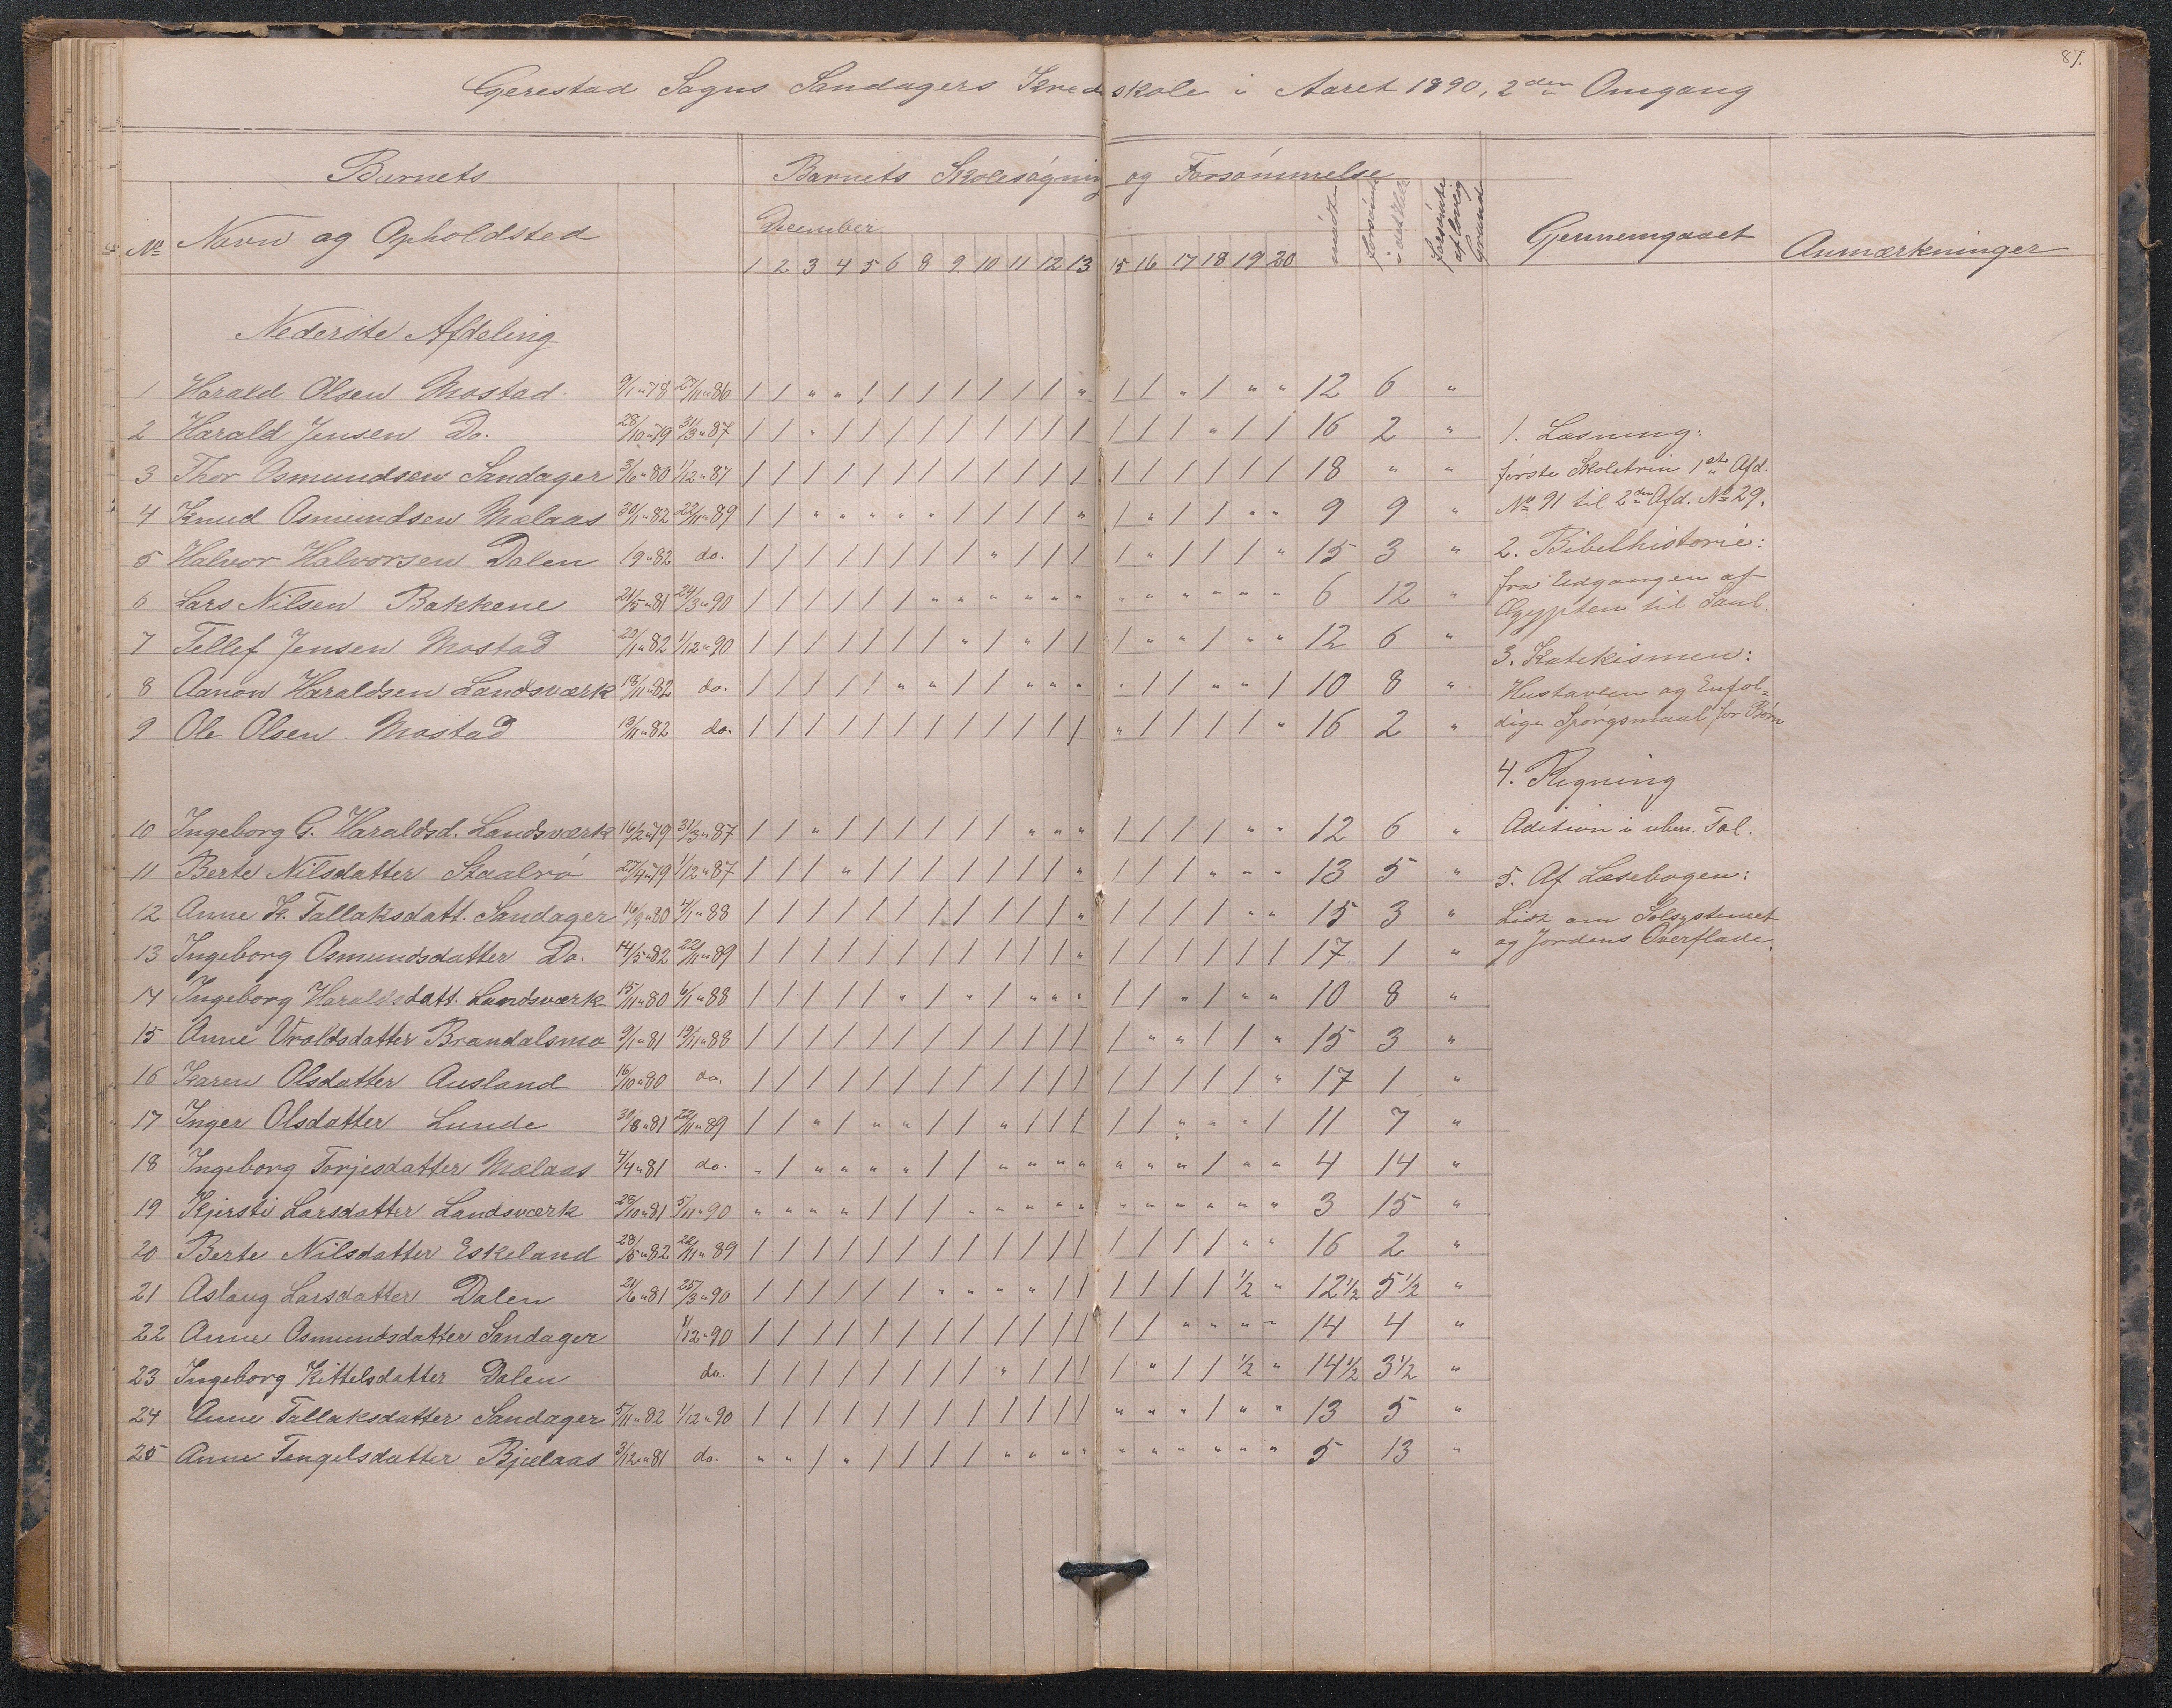 87.
Gerestad Sogns Sandagers Kredsskole i Aaret 1890, 2den Omgang
Barnets
Barnets Skolesøgning og Forsømmelse
No Navn og Opholdsted
December
1 2 3 4 5 6 8 9 10 11 12 13 15 16 17 18 19 20 mødte Forsømte i det Hele Forsømte af lovlig Grund
Gjennemgaaet
Anmærkninger
Nederste Afdeling
1 Harald Olsen Mostad 9/1 „ 78 27/11 „ 86 / / „ „ / / / / / / / „ / / „ / „ „ 12 6 „
2 Harald Jensen Do. 28/10 „ 79 31/3 „ 87 / / „ / / / / / / / / / / / / „ / / 16 2 „
3 Thor Osmundsen Sandager 3/6 „ 80 1/12 „ 87 / / / / / / / / / / / / / / / / / / 18 „ „
4 Knud Osmundsen Mælaas 30/1 „ 82 22/11 „ 89 / / „ „ „ „ „ / / / / „ / „ / / „ „ 9 9 „
5 Halvor Halvorsen Dalen 19 „ 82 do. / / / / / / / / „ / / / / „ / / / „ 15 3 „
6 Lars Nilsen Bakkene 21/5 „ 81 24/3 „ 90 / / / / / / „ „ „ „ „ „ „ „ „ „ „ „ 6 12 „
7 Tellef Jensen Mostad 20/1 „ 82 1/12 „ 90 / / / / / / / „ / „ / / / „ „ / „ „ 12 6 „
8 Aanon Haraldsen Landsværk 18/11 „ 82 do. / / / / / „ „ / / „ „ „ „ / / „ „ / 10 8 „
9 Ole Olsen Mostad 19/11 „ 82 do. / / / / / / / / / / / / „ / / / / „ 16 2 „
10 Ingeborg G. Haraldsd. Landsværk 16/2 „ 79 31/3 „ 87 / / „ / / / / / / „ „ „ / / / / „ „ 12 6 „
11 Berte Nilsdatter Staalrø 27/4 „ 79 1/12 „ 87 / / / „ / / / / / / / „ / / / „ „ „ 13 5 „
12 Anne K. Tallaksdatt. Sandager 16/9 „ 80 4/1 „ 88 / / / / / / / / / / / „ / / / / „ „ 15 3 „
13 Ingeborg Osmundsdatter Do. 14/5 „ 82 22/11 „ 89 / / / / / / / / / / / „ / / / / / / 17 1 „
14 Ingeborg Haraldsdatt. Landsværk 15/11 „ 80 6/11 „ 88 / / / / / „ / „ / „ „ „ / / „ / „ „ 10 8 „
15 Anne Vroldsdatter Brandalsmo 9/1 „ 81 19/11 „ 88 / / / / / / / / / / / / / „ „ / / „ 15 3 „
16 Karen Olsdatter Ausland 16/10 „ 80 do. / / / / / / / / / / / / / / / / / „ 17 1 „
17 Inger Olsdatter Lunde 30/8 „ 81 22/11 „ 89 / / „ / „ „ / / „ / / / / / „ „ „ / 11 7 „
18 Ingeborg Torjesdatter Mælaas 4/4 „ 81 do. „ / „ „ „ „ / / „ „ „ „ „ „ „ / „ „ 4 14 „
19 Kjersti Larsdatter Landsværk 28/10 „ 81 5/11 „ 90 „ „ „ „ / / / „ „ „ „ „ „ „ „ „ „ „ 3 15 „
20 Berte Nilsdatter Eskeland 28/5 „ 82 22/11 „ 89 / / / / / / / / / / / / / / / / „ „ 16 2 „
21 Aslaug Larsdatter Dalen 21/6 „ 81 25/3 „ 90 / / / / / / „ „ „ „ / / / / / / 1/2 „ 12 1/2 5 1/2 „
22 Anne Osmundsdatter Sandager 1/12 „ 90 / / / / / / / / / / / / / / „ „ „ „ 14 4 „
23 Ingeborg Kittelsdatter Dalen do. / / / / / / / / „ / / / / „ / / 1/2 „ 14 1/2 3 1/2 „
24 Anne Tallaksdatter Sandager 5/11 „ 82 1/12 „ 90 / / / / / / / / / / / / „ „ „ / „ „ 13 5 „
25 Anne Tengelsdatter Bjælaas 3/12 „ 81 do. „ „ / „ / / / / „ „ „ „ „ „ „ „ „ „ 5 13 „
1. Læsning:
første Skoletrin 1ste Afd.
No 91 til 2den Afd. No 29.
2. Bibelhistorie:
fra Udgangen af
Ægypten til Saul.
3. Katekismen:
Hustavlen og Enfol-
dige Spørgsmaal for Børn
4. Regning
Adition i uben. Tal.
5. Af Læsebogen:
Lidt om Solsystemet
og Jordens Overflade.